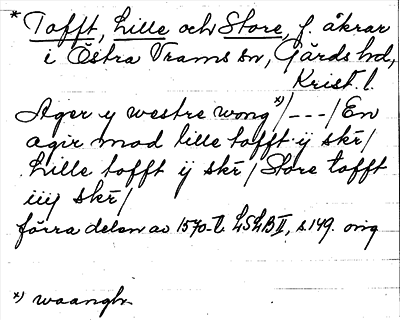 * Tofft, Lille och Store, f. åkrar
i Östra Vrams sn, Gärds hd,
Krist. l.
Ager y westre wong x)/---/En
agir mod lille tofft ij skr/
Lille tofft ij skr/Store tofft
iiij skr/
förra delen av 1570-t. LSLB II, s. 149. orig
x) waangh